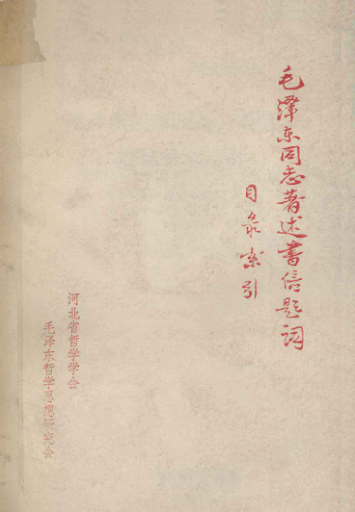 毛泽东同志著述書信题词
目录索引
河北省哲学学会
毛泽东哲学思想研究会